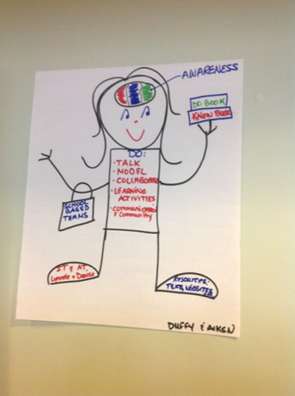 AWARENESS
DO BOOK
KNOW BOOK
DO:
• TALK
• MODEL
• COLLABORATE
• LEARNING
ACTIVITIES
• COMMUNICATION
& Community
SCHOOL
BASED
TEAMS
IT & AT
RESOURCES:
TEXT, WEBSITES
DUFFY & AIKEN